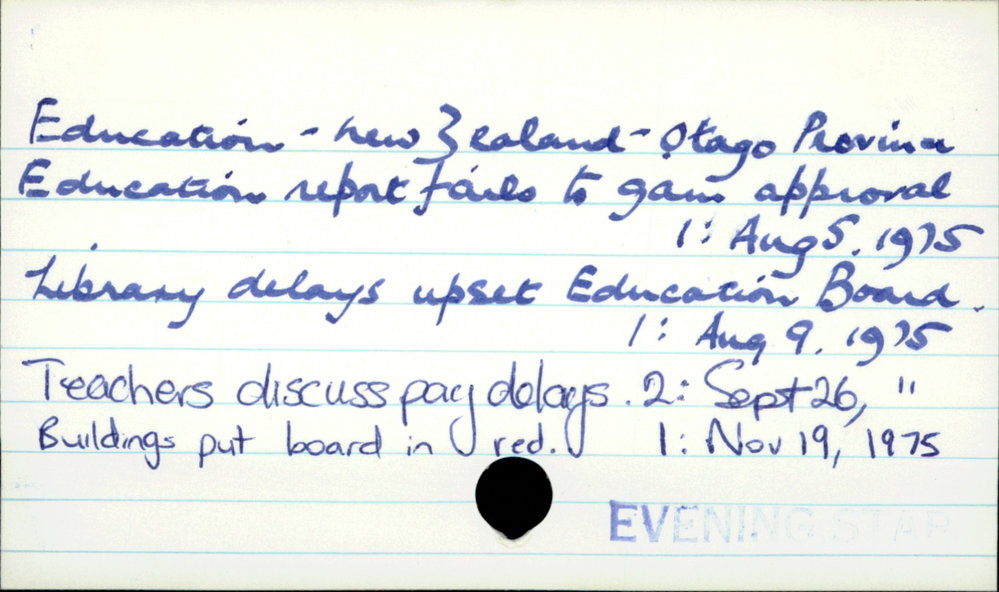 Education - New Zealand - Otago Province
Education report fails to gain approval
1: Aug 5. 1975
Library delays upset Education Board.
1: Aug 9. 1975
Teachers discuss pay delays. 2: Sept 26, "
Buildings put board in red. 1: Nov 19, 1975
EVENING STAR